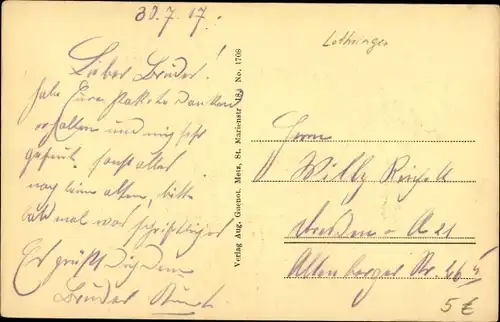 30.7.17.
Lothringen
Lieber Bruder!
habe Eure Pakete dankend
erhalten und mich sehr
gefreut, sonst alles
noch beim alten, bitte
bald mal was schriftliches
Es grüßt Dich Dein
Bruder
Verlag Aug. Guenot, Metz, St. Marienstr 18. No. 1708
Herrn
Willy
Dresden - A 21
Altenberger Str.
5 €